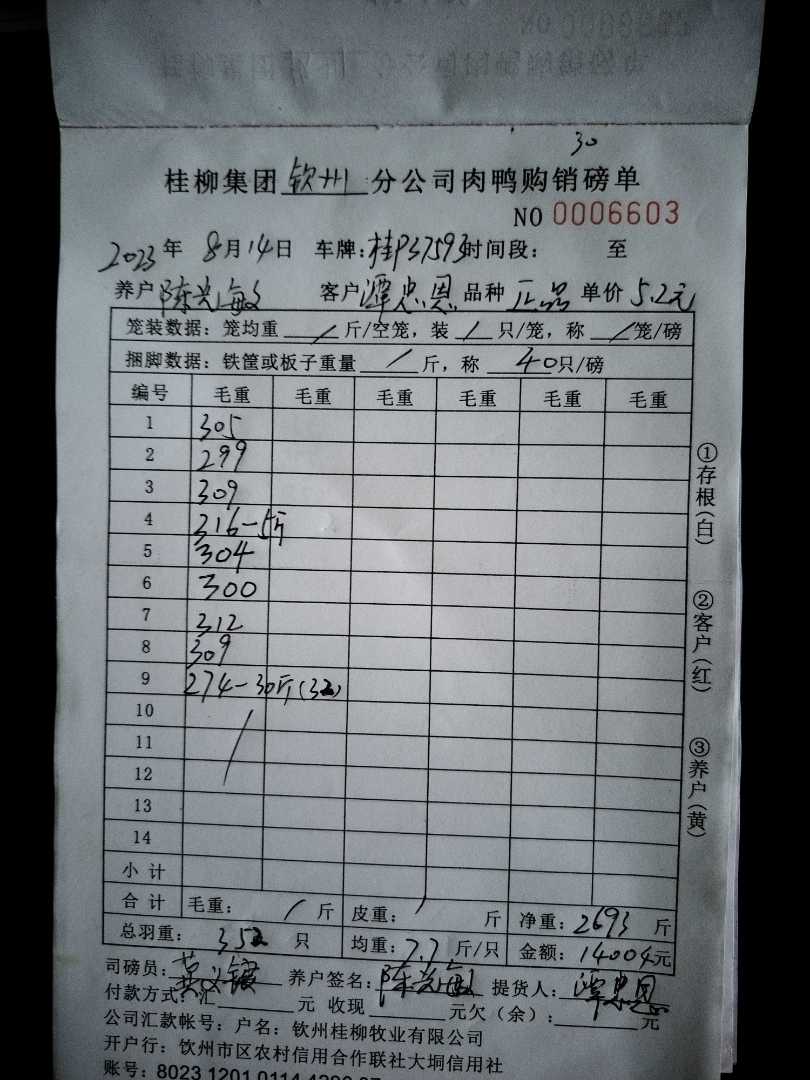 30
桂柳集团钦州分公司肉鸭购销磅单
NO 0006603
2023年 8月14日 车牌:桂P37593时间段: 至
养户陈兴敏 客户潭忠恩 品种 正品 单价 5.2元
笼装数据: 笼均重 / 斤/空笼, 装 / 只/笼, 称 / 笼/磅
捆脚数据: 铁筐或板子重量 / 斤, 称 40只/磅
编号 毛重 毛重 毛重 毛重 毛重 毛重
1 305
2 299
3 309
4 316-5斤
5 304
6 300
7 312
8 309
9 274-30斤(32)
10
11 /
12
13
14
小计
合计 毛重: / 斤 皮重: / 斤 净重: 2693 斤
总羽重: 352 只 均重: 7.7 斤/只 金额: 14004元
司磅员: 养户签名: 陈兴敏 提货人: 潭忠恩
付款方式: 汇 元 收现 元欠(余): 元
公司汇款帐号: 户名: 钦州桂柳牧业有限公司
开户行: 钦州市区农村信用合作联社大垌信用社
账号: 8023 1201 0114
①存根(白)
②客户(红)
③养户(黄)